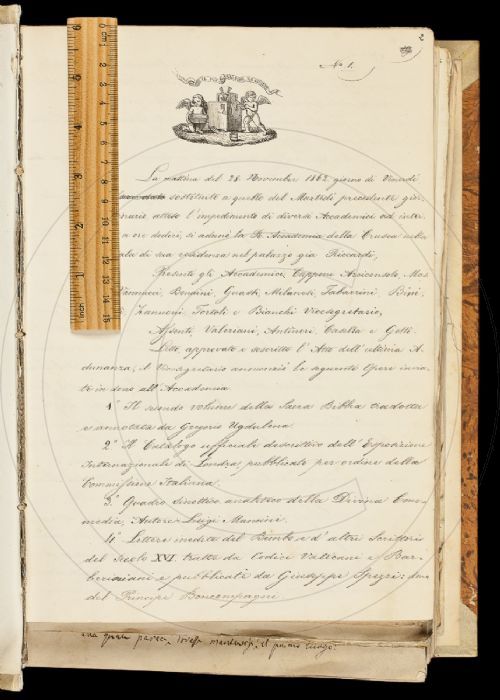 2
N.o 1.
La mattina del 28 Novembre 1862 giorno di Venerdì
sostituito a quello del Martedì precedente gior
nario atteso l'impedimento di diversi Accademici ad inter
a ore dodici, si adunò la R. Accademia della Crusca nella
sala di sua residenza nel palazzo già Riccardi,
Presenti gli Accademici, Capponi Arciconsolo, 
Vannucci, Bencini, Guasti, Milanesi, Tabarrini, Bini,
Zannoni, Tortoli e Bianchi Vicesegretario,
Assenti, Valeriani, Antinori, Casella e Gotti.
Letto, approvato e soscritto l'Atto dell'ultima A-
dunanza, il Vicesegretario annunziò le seguenti Opere invia
te in dono all'Accademia
1° Il secondo volume della Sacra Bibbia tradotta
e annotata da Gregorio Ugdulena
2° Il Catalogo ufficiale descrittivo dell'Esposizione
Internazionale di Londra, pubblicato per ordine della
Commissione Italiana.
3° Quadro sinottico analitico della Divina Com-
media, Autore Luigi Mancini.
4° Lettere inedite del Bembo e d'altri Scrittori
del Secolo XVI. tratte da Codici Vaticani e Bar-
beriniani e pubblicate da Giuseppe Spezi: dono
del Principe Boncompagni
il primo luogo: